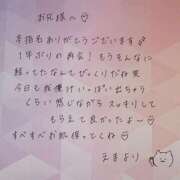 お兄様へ♡
本指名ありがとうございます
1年ぶりの再会!もうそんなに
経ってたなんてびっくりだね笑
今日も我慢汁いっぱい出ちゃう
くらい感じながらスッキリして
もらえて良かったよー♡
すべすべお肌保っててくれ♡
えまより